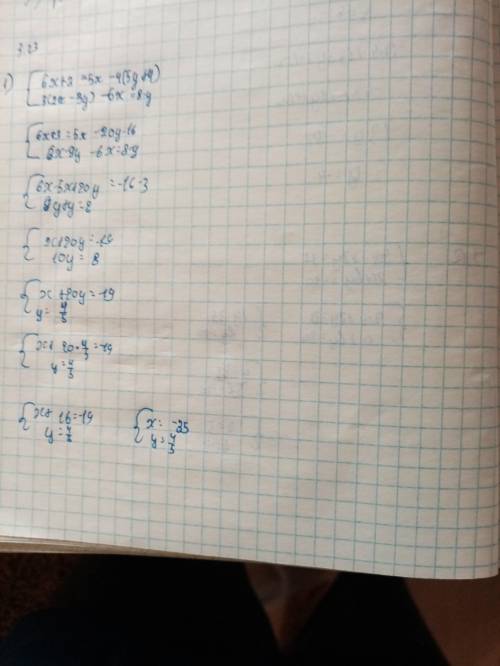 3.23
1) { 6x+3 = 5x - 4(5y+4)
3(2x - 3y) - 6x = 8-y
{ 6x+3 = 5x - 20y - 16
6x-9y - 6x = 8-y
{ 6x-5x+20y = -16-3
x+20y = -19
10y = 8
{ x + 20y = -19
y = 4/5
{ x + 20 · 4/5 = -19
y = 4/5
{ x + 16 = -19
y = 4/5
{ x = -25
y = 4/5